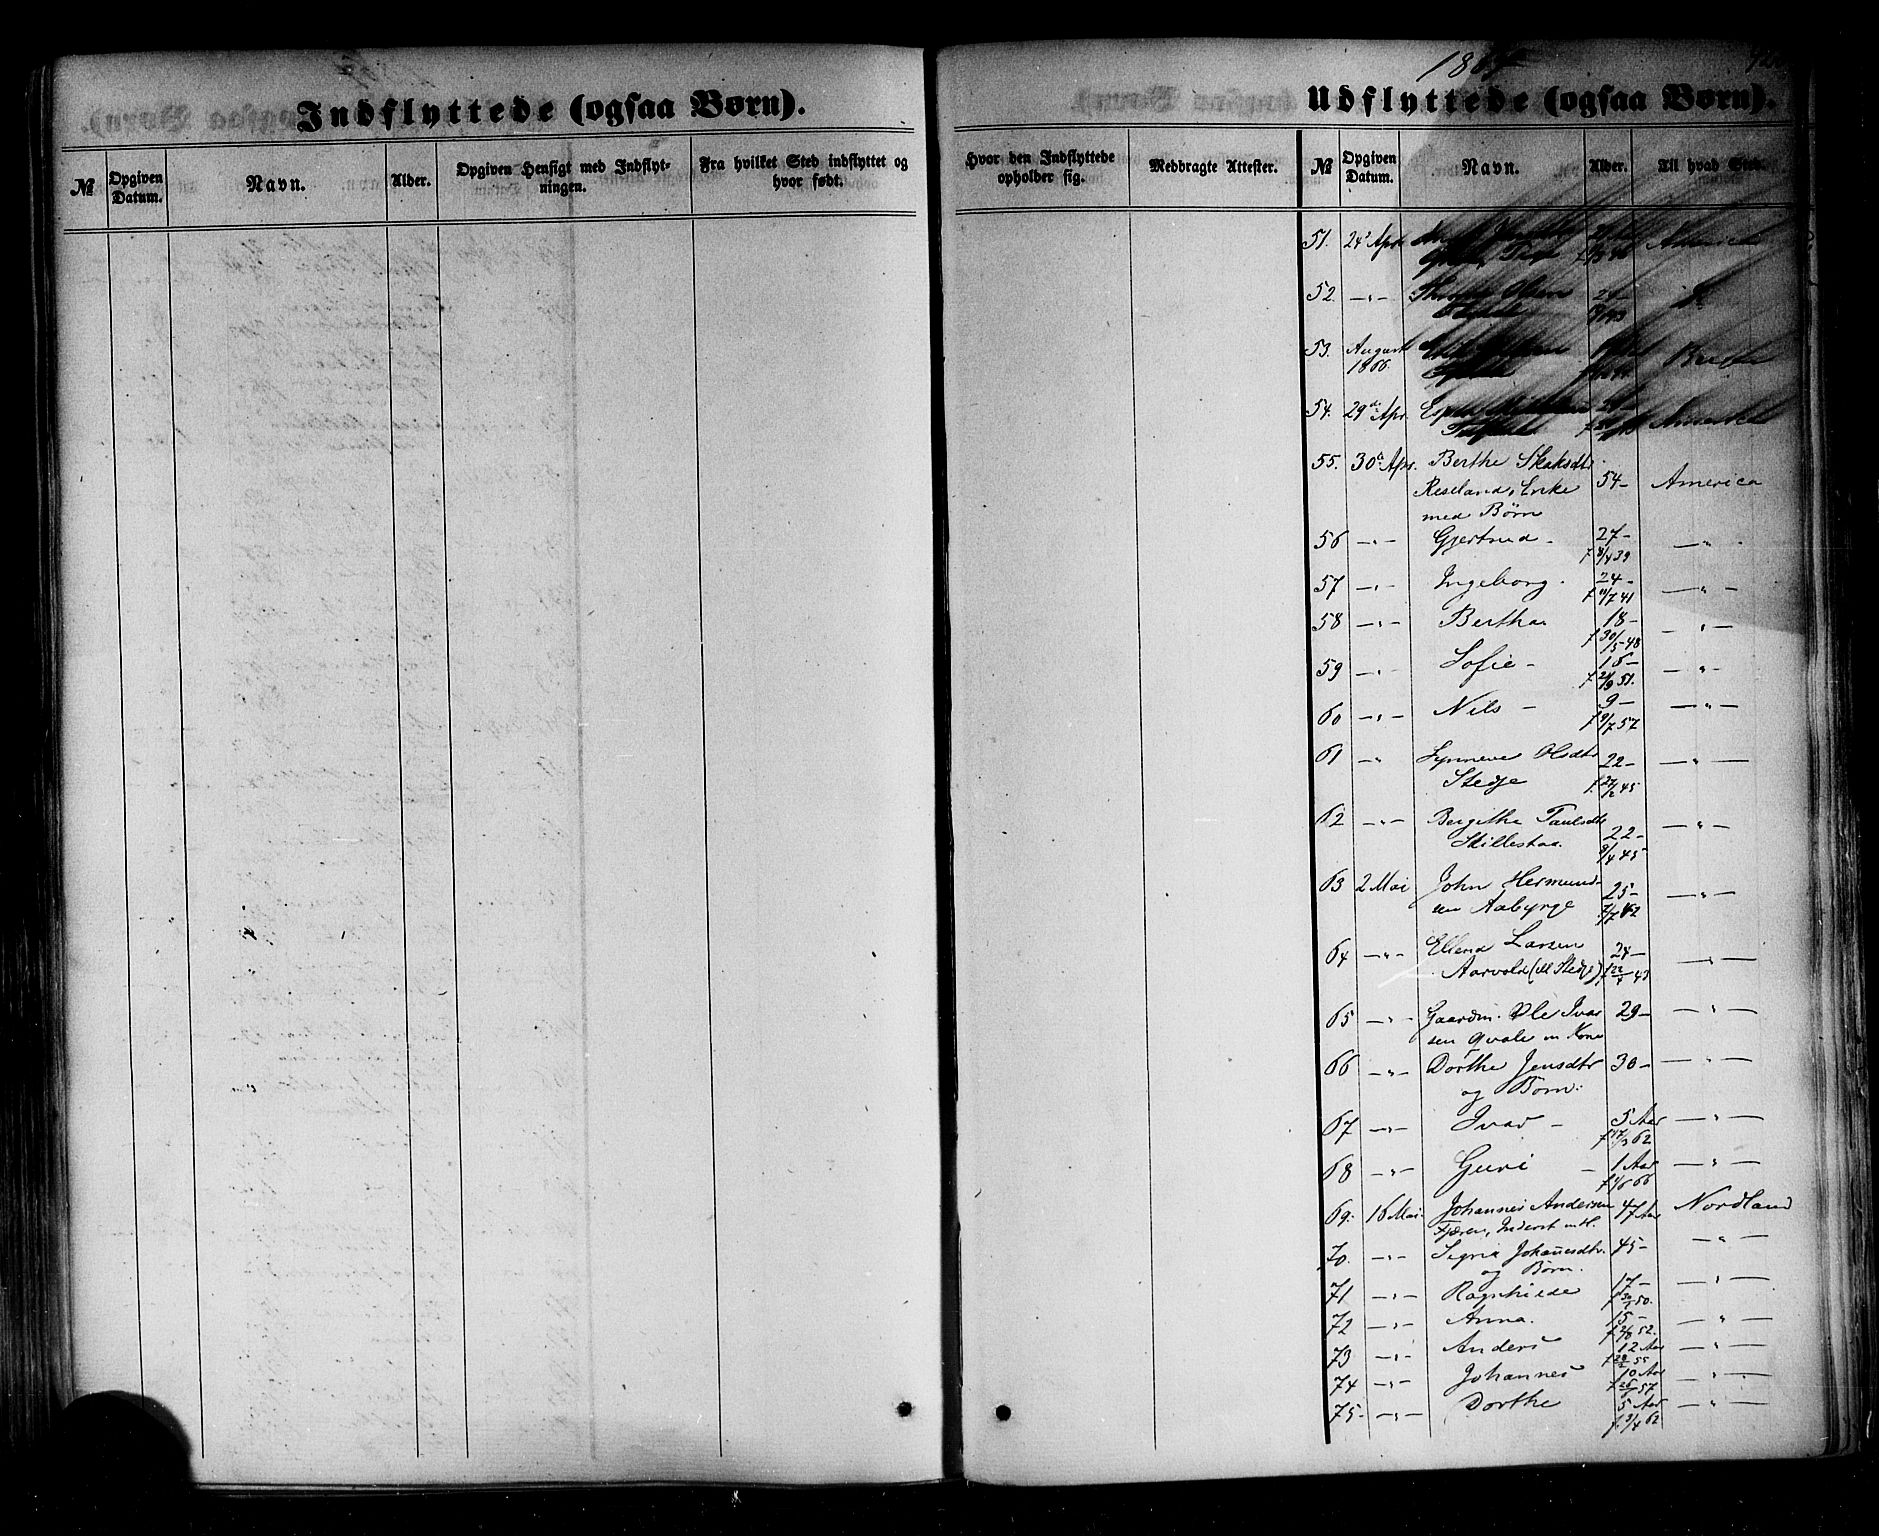 Indflyttede (ogsaa Børn).
№
Opgiven Datum.
Navn.
Alder.
Opgiven Hensigt med Indflyt-
ningen.
Fra hvilket Sted indflyttet og
hvor født.
Udflyttede (ogsaa Børn).
Hvor den Indflyttede
opholder sig.
Medbragte Attester.
№
Opgiven Datum.
Navn.
Alder.
Til hvad Sted
51. 24' Apr. America
52. —„— Olsen 24—
53. August
1866.
54. 29d Apr.
55. 30d Apr. Berthe Skaksdtr
Reseland, Enke 54— America
med Børn
56 —„— Gjertrud — 27— —„—
f 8/4 39
57 —„— Ingeborg. 24— —„—
f 11/7 41
58 —„— Bertha 18— —„—
f 30/5 48
59 —„— Sofie — 16— —„—
f 21/9 51.
60 —„— Nils — 9— —„—
f 9/7 57
61 —„ Synneve Olsdtr 22— —„—
Stedje f 27/12 45
62 —„— Bergithe Paulsdtr —„—
Skillestaa. 22—
9/4 45
63 2 Mai John Hermund- 25— —„—
sen Aabyrge 7/7 42
64 —„— Ellend Larsen 24— —„—
Aarvold (ell Stedje) f 22/4 43
65 —„— Gaardm. Ole Ivar 29— —„—
sen Qvale m Kone
66 —„— Dorthe Jensdtr 30— —„—
og Børn:
67 —„— Ivar — 5 Aar —„—
f 17/3 62
68 —„— Guri — 1 Aar —„—
f 1/6 66
69. 16 Mai. Johannes Andersen 47 Aar Nordland
Fjæren, Inderst m H
70. —„— Sigrid Johanesdtr. 45— —„—
og Børn.
71 —„— Ragnhilde 17— —„—
f 30/1 50.
72 —„— Anna. 15— —„—
f 2/8 52.
73 —„— Anders 12 Aar —„—
f 28/2 55
74 —„— Johannes 10 Aar —„—
f 26/1 57
75— —„— Dorthe 5 Aar —„—
f. 9/4 62